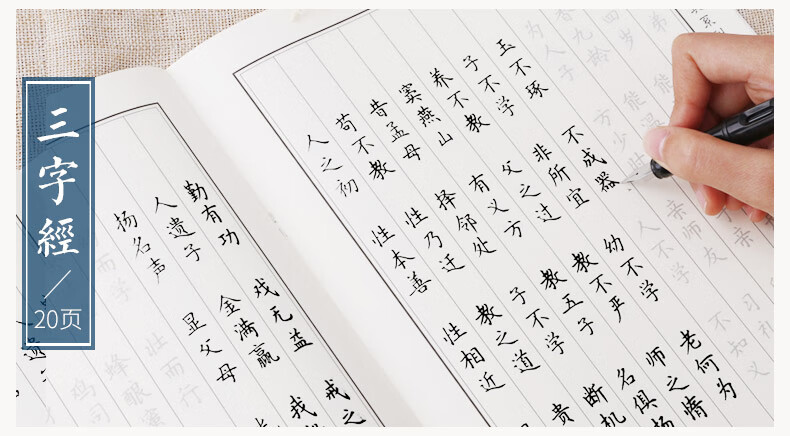 三字經
20页
人之初 性本善 性相近
苟不教 性乃迁 教之道 贵
昔孟母 择邻处 子不学 断机
窦燕山 有义方 教五子 名俱扬
养不教 父之过 教不严 师之惰
子不学 非所宜 幼不学 老何为
玉不琢 不成器 人不学 不知义
为人子 方少时 亲师友 习礼
香九龄 能温
扬名声 显父母
人遗子 金满赢 我
勤有功 戏无益 戒之